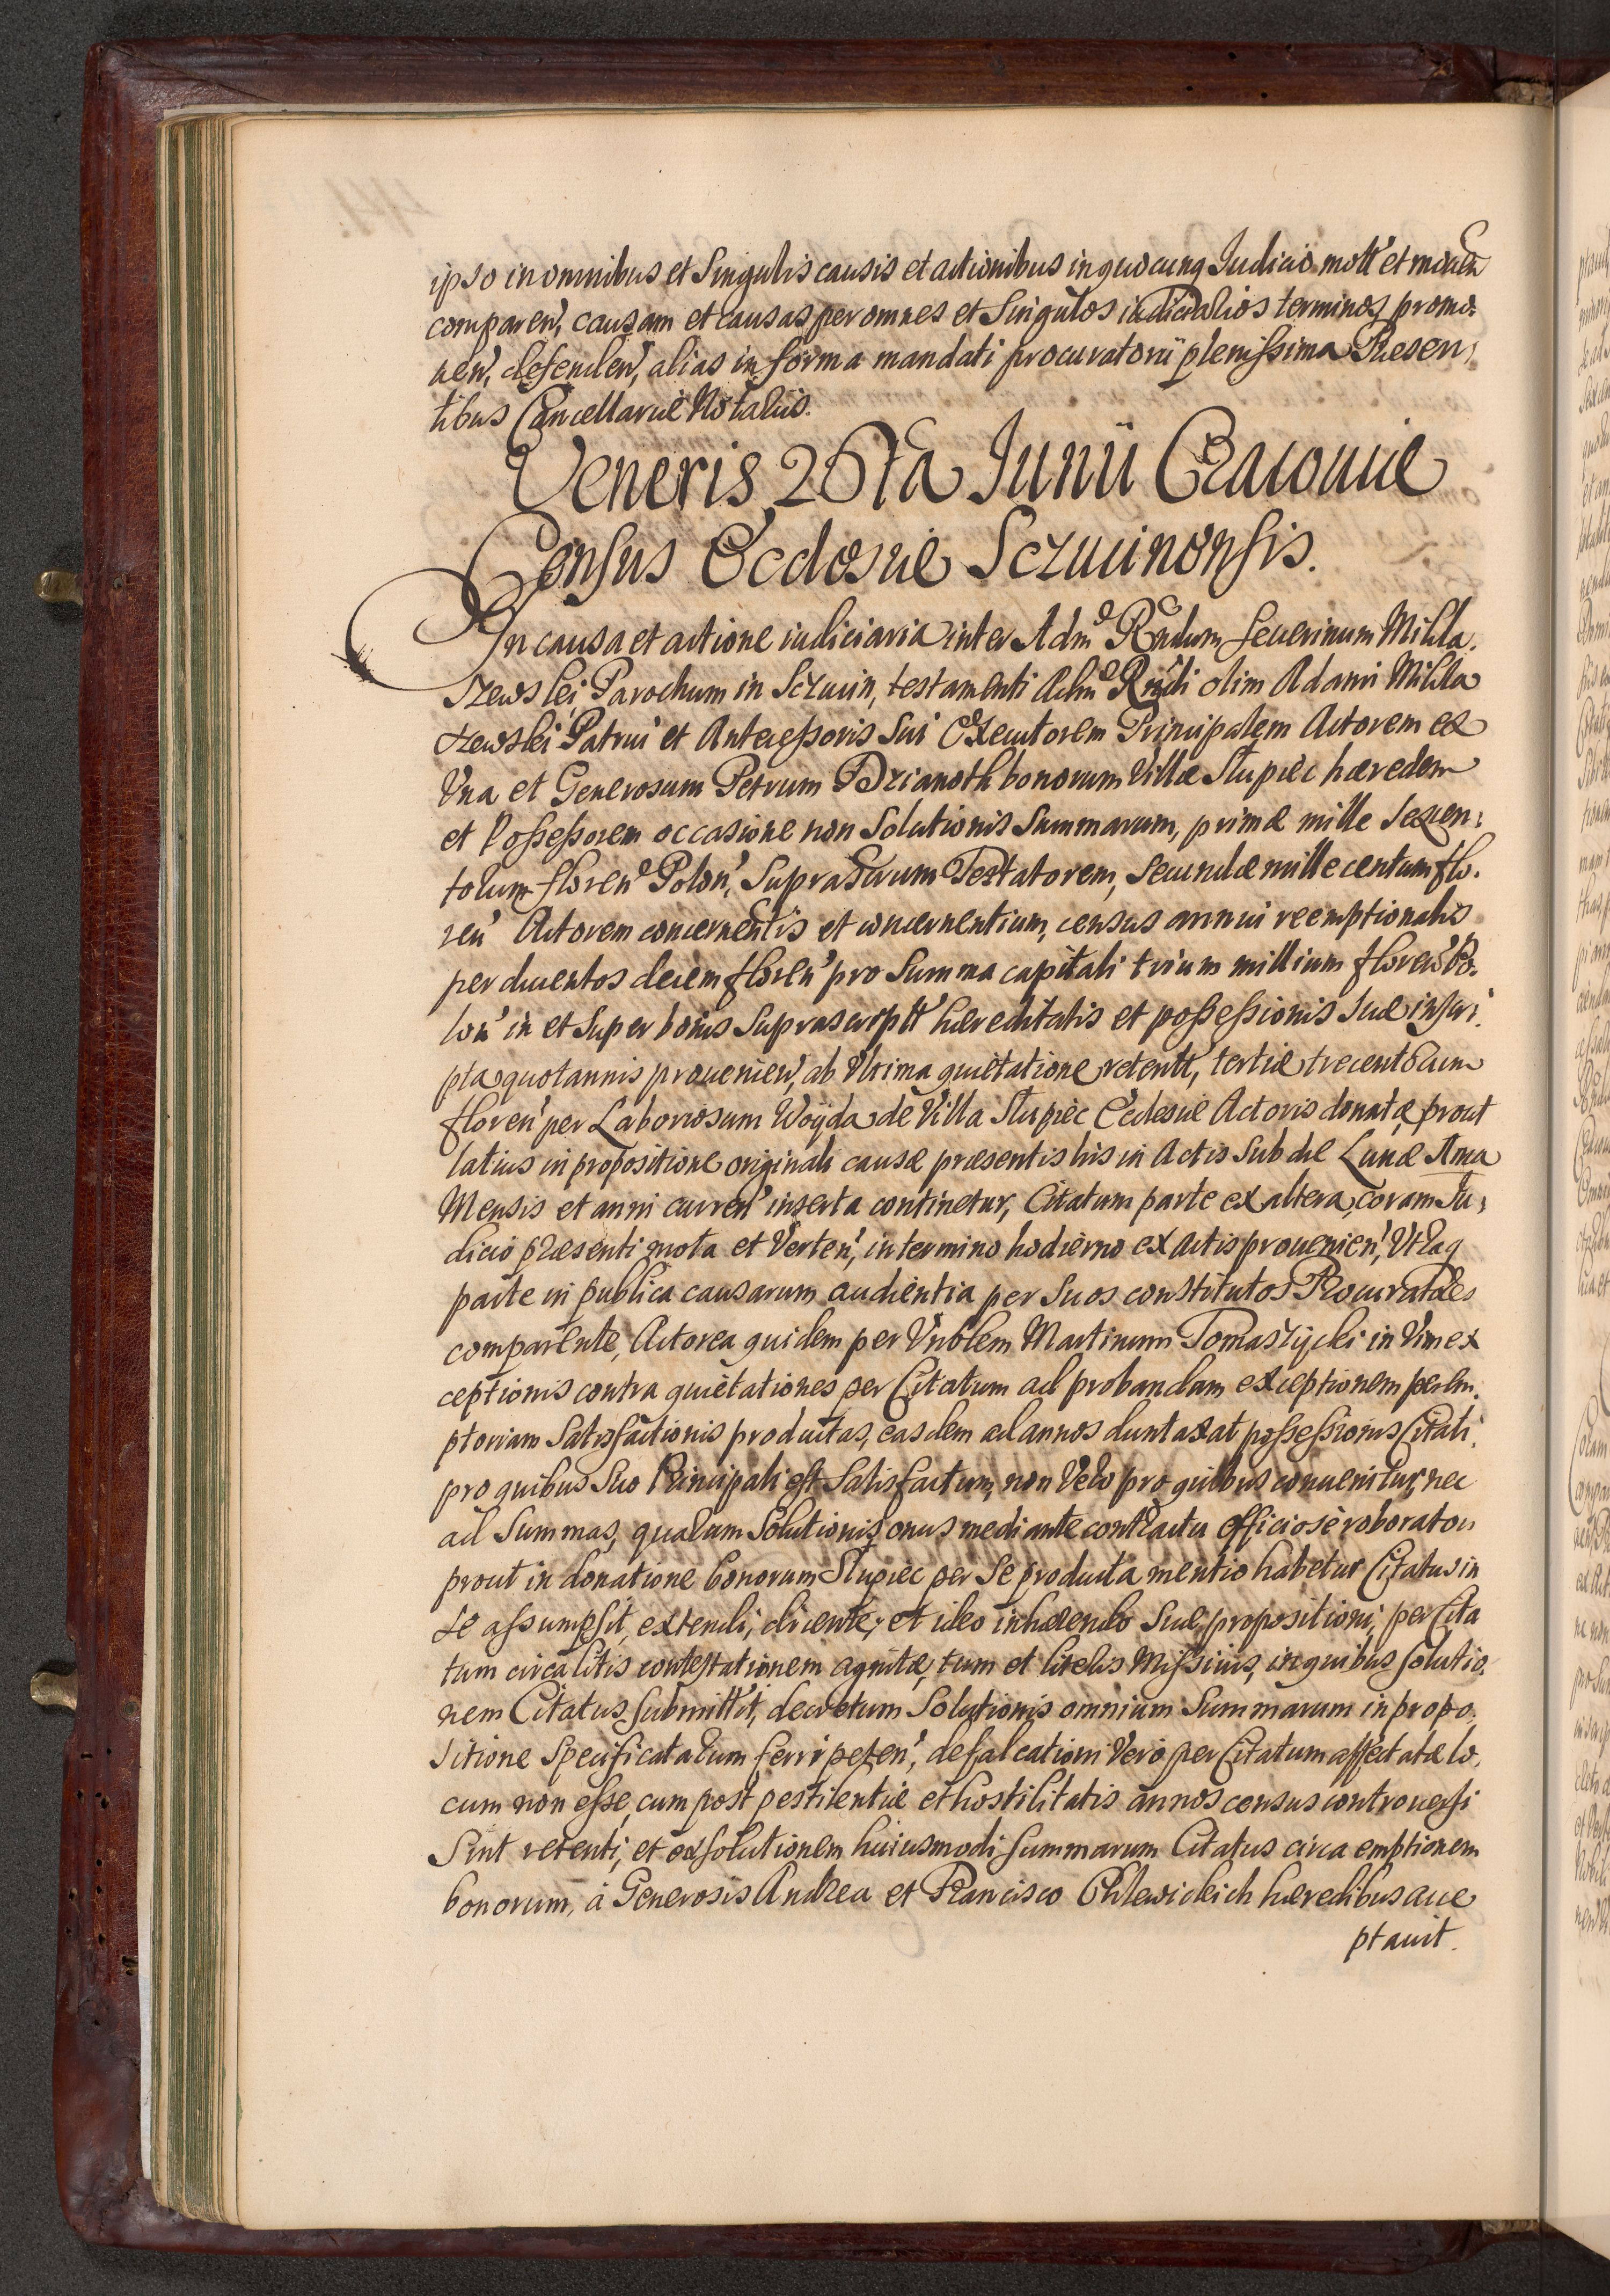 ipso in omnibus et Singulis causis et actionibus in quocunq Iudicio mott' et mouen
comparen', causam et causas per omnes et Singulos iudiciales terminos promo:
uen', defenden', alias in forma mandati procuratorii plenissima Presen,
tibus Cancellariæ Notariis.
Veneris 26ta Iunii Cracouiæ
Census Ecclesiæ Sczucinensis.
In causa et actione iudiciaria inter Adm Rndum Seuerinum Mikla,
szewski Parochum in Sczucin, testamenti Adm Rndi olim Adami Mikla
szewski Patrui et Antecessoris Sui Executorem Principalem Actorem ex
Vna et Generosum Petrum Dzianoth bonorum Villæ Slupiec hæredem
et Possessorem occasione non Solutionis Summarum, primæ mille Sexen:
torum floren' Polon', Suprascrum Testatorem, Secundæ mille centum flo.
ren' Actorem concernentis et concernentium, census annui reemptionalis
per ducentos decem floren' pro Summa capitali trium millium floren' Po.
lon' in et Super bonis Suprascriptt' hæreditatis et possessionis Suæ inscri.
pta quotannis prouenien', ab Vltima quietatione retentt, tertiæ trecentorum
floren' per Laboriosum Woyda de Villa Slupiec Ecclesiæ Actoris donatæ, prout
latius in propositione originali causæ præsentis his in Actis Sub die Lunæ 1ma
Mensis et anni curren' inserta continetur, Citatum parte ex altera, coram Iu,
dicio præsenti mota et Verten', in termino hodierno ex Actis prouenien', Vtraq
parte in publica causarum audientia per Suos constitutos Procuratores
comparente, Actorea quidem per Vnoblem Martinum Tomaszycki in Vim ex
ceptionis contra quietationes per Citatum ad probandam exceptionem perem.
ptoriam Satisfactionis productas, easdem ad annos duntaxat possessionis Citati,
pro quibus Suo Principali est Satisfactum, non Vero pro quibus conuenitur, nec
ad Summas, quarum Solutionis onus mediante contractu officiose roborato
prout in donatione bonorum Slupiec per Se producta mentio habetur Citatus in
Se assumpsit, extendi, dicente, et ideo inhærendo Suæ propositioni, per Cita
tum circa litis contestationem agnitæ, tum et litelis Missiuis, in quibus Solutio.
nem Citatus Submittit, decretum Solutionis omnium Summarum in propo.
sitione Specificatarum ferri peten', defalcationi Vero per Citatum affectatæ lo.
cum non esse, cum post pestilentiæ et hostilitatis annos census controuersi
Sint retenti, et exsolutionem huiusmodi Summarum Citatus circa emptionem
bonorum, à Generosis Andrea et Francisco Chlewickich hæredibus acce
ptauit.